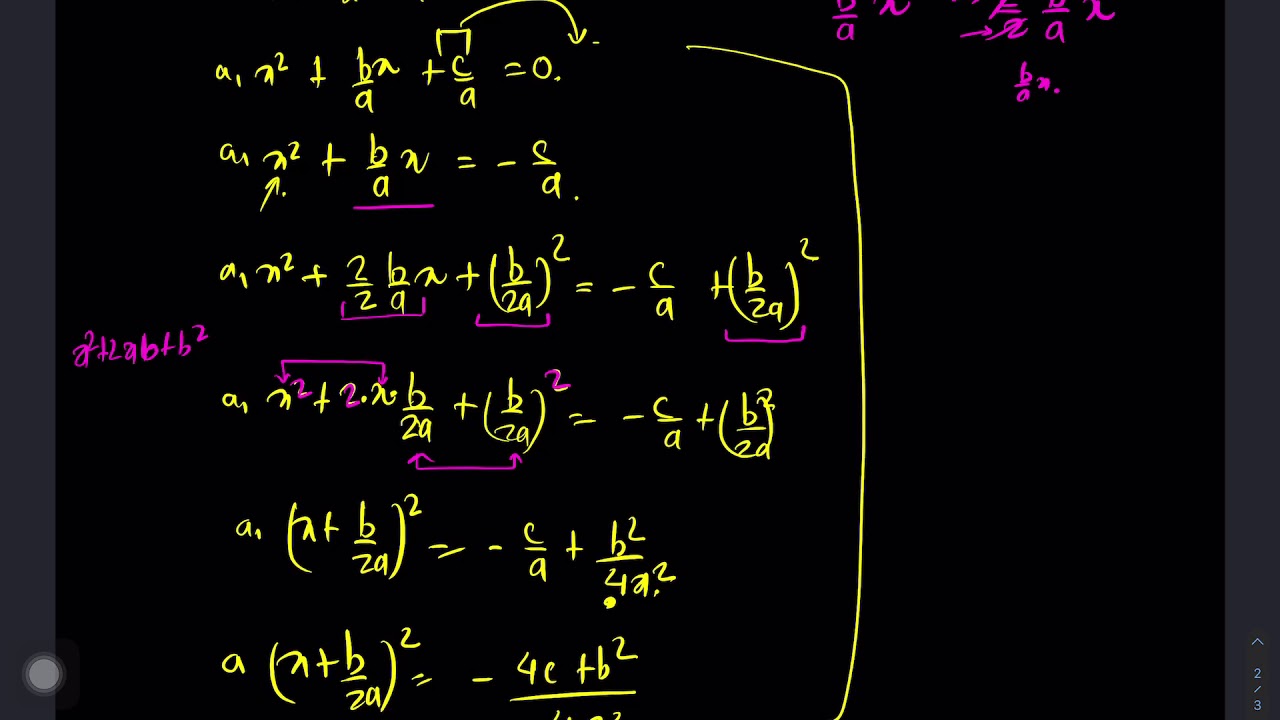 b/a x → 2/2 b/a x
b/a x.
a, x² + bx/a + c/a = 0.
a, x² + b/a x = - c/a.
a, x² + 2/2 b/a x + (b/2a)² = - c/a + (b/2a)²
a²+2ab+b²
a, x² + 2·x· b/2a + (b/2a)² = - c/a + (b/2a)²
a, (x + b/2a)² = - c/a + b²/4a².
a (x + b/2a)² = - 4c + b²
2
/
3